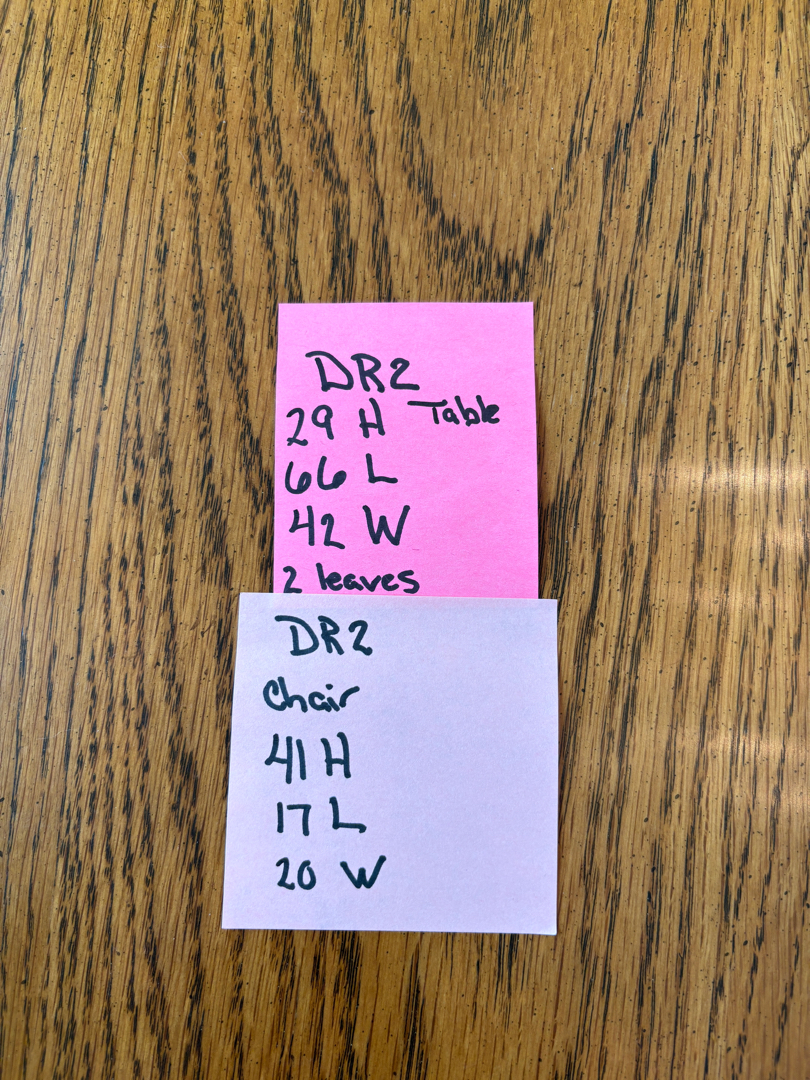 DR2
29 H Table
66 L
42 W
2 leaves
DR2
Chair
41 H
17 L
20 W